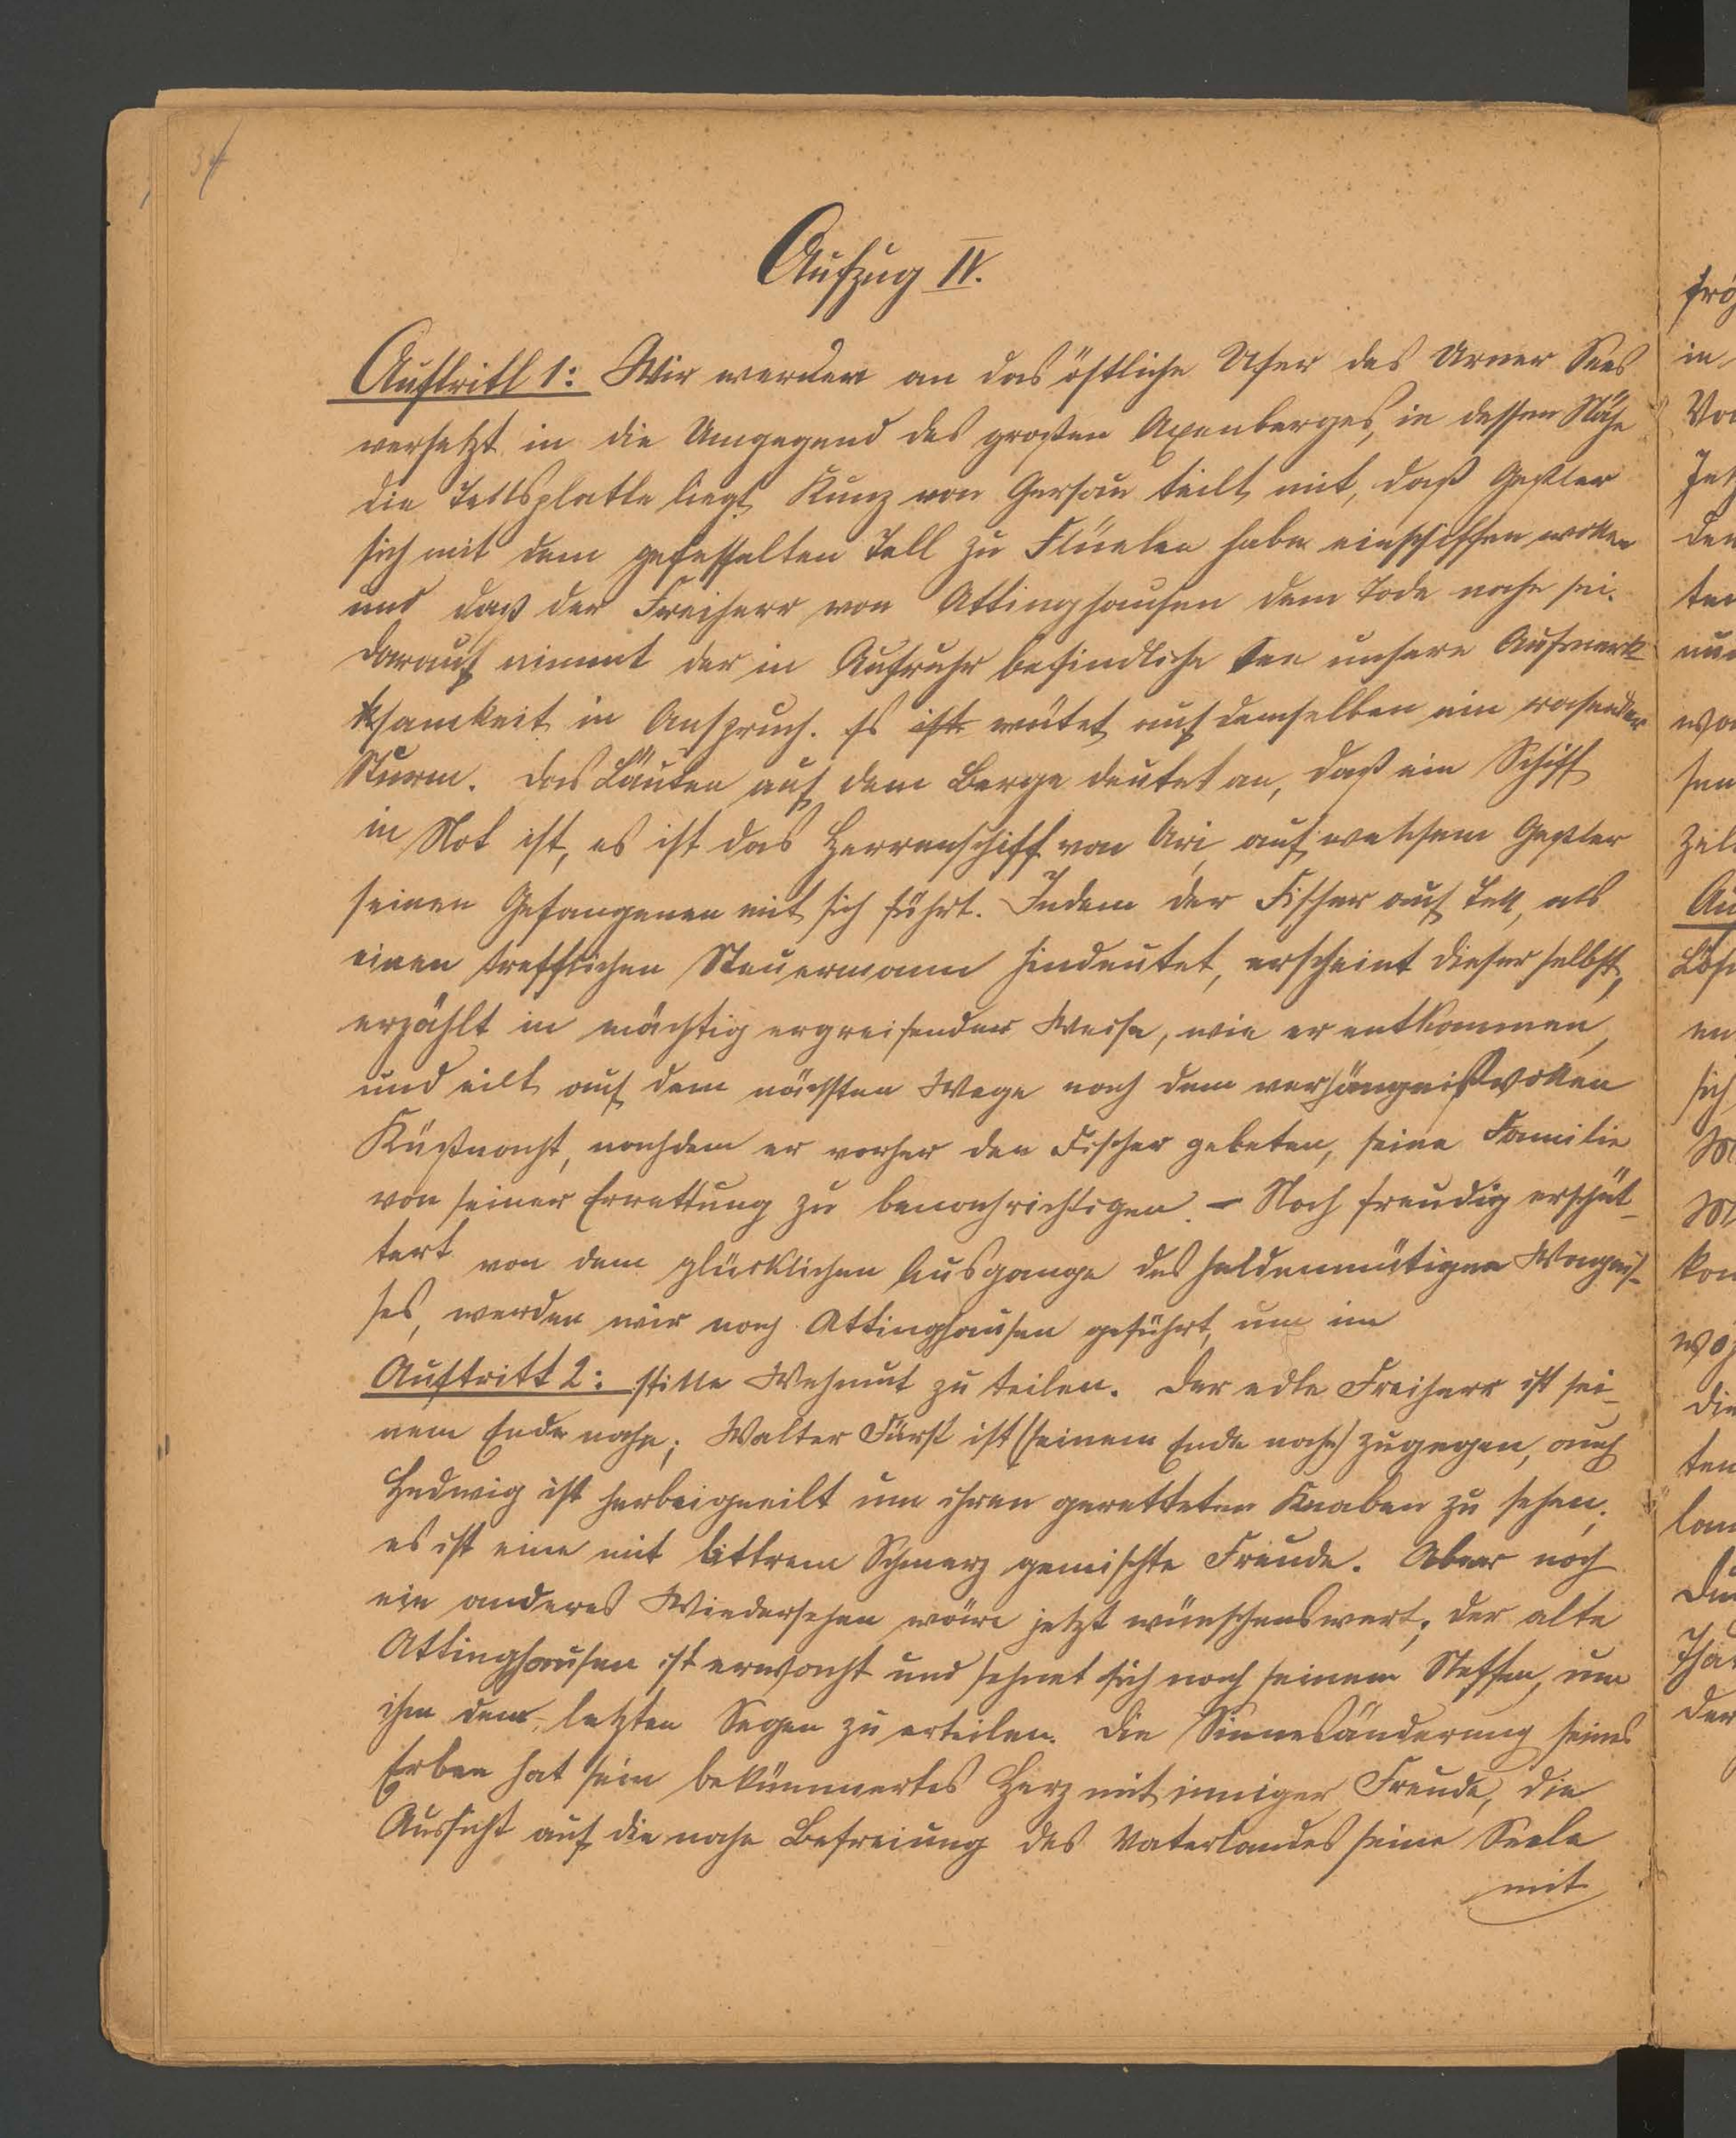 34
Aufzug IV.
Auftritt 1: Wir werden an das östliche Ufer des Urner Sees
versetzt in die Umgegend des großen Axenberges, in dessen Nähe
die Tellsplatte liegt. Kunz von Gersau teilt mit, daß Geßler
sich mit dem gefesselten Tell zu Flüelen habe einschiffen wollen
und daß der Freiherr von Attinghausen dem Tode nahe sei.
Darauf nimmt der in Aufruhr befindliche See unsere Aufmerk-
samkeit in Anspruch. Es ist wütet auf demselben ein rasender
Sturm. Das Läuten auf dem Berge deutet an, daß ein Schiff
in Not ist, es ist das Herrenschiff von Uri, auf welchem Geßler
seinen Gefangenen mit sich führt. Indem der Fischer auf Tell, als
einen trefflichen Steuermann hindeutet, erscheint dieser selbst,
erzählt in mächtig ergreifender Weise, wie er entkommen,
und eilt auf dem nächsten Wege nach dem verhängnißvollen
Küßnacht, nachdem er vorher den Fischer gebeten, seine Familie
von seiner Errettung zu benachrichtigen. – Noch freudig erschüt-
tert von dem glücklichen Ausgange des heldenmütigen Wagnis-
ses, werden wir nach Attinghausen geführt, um im
Auftritt 2: stille Wehmut zu teilen. Der edle Freiherr ist sei-
nem Ende nahe; Walter Fürst ist (seinem Ende nahe) zugegen, auch
Hedwig ist herbeigeeilt um ihren geretteten Knaben zu sehen;
es ist eine mit bittrem Schmerz gemischte Freude. Aber noch
ein anderes Wiedersehen wäre jetzt wünschenswert; der alte
Attinghausen ist erwacht und sehnet sich nach seinem Neffen, um
ihm den letzten Segen zu erteilen. Die Sinnesänderung seines
Erben hat sein bekümmertes Herz mit inniger Freude, die
Aussicht auf die nahe Befreiung des Vaterlandes seine Seele
mit